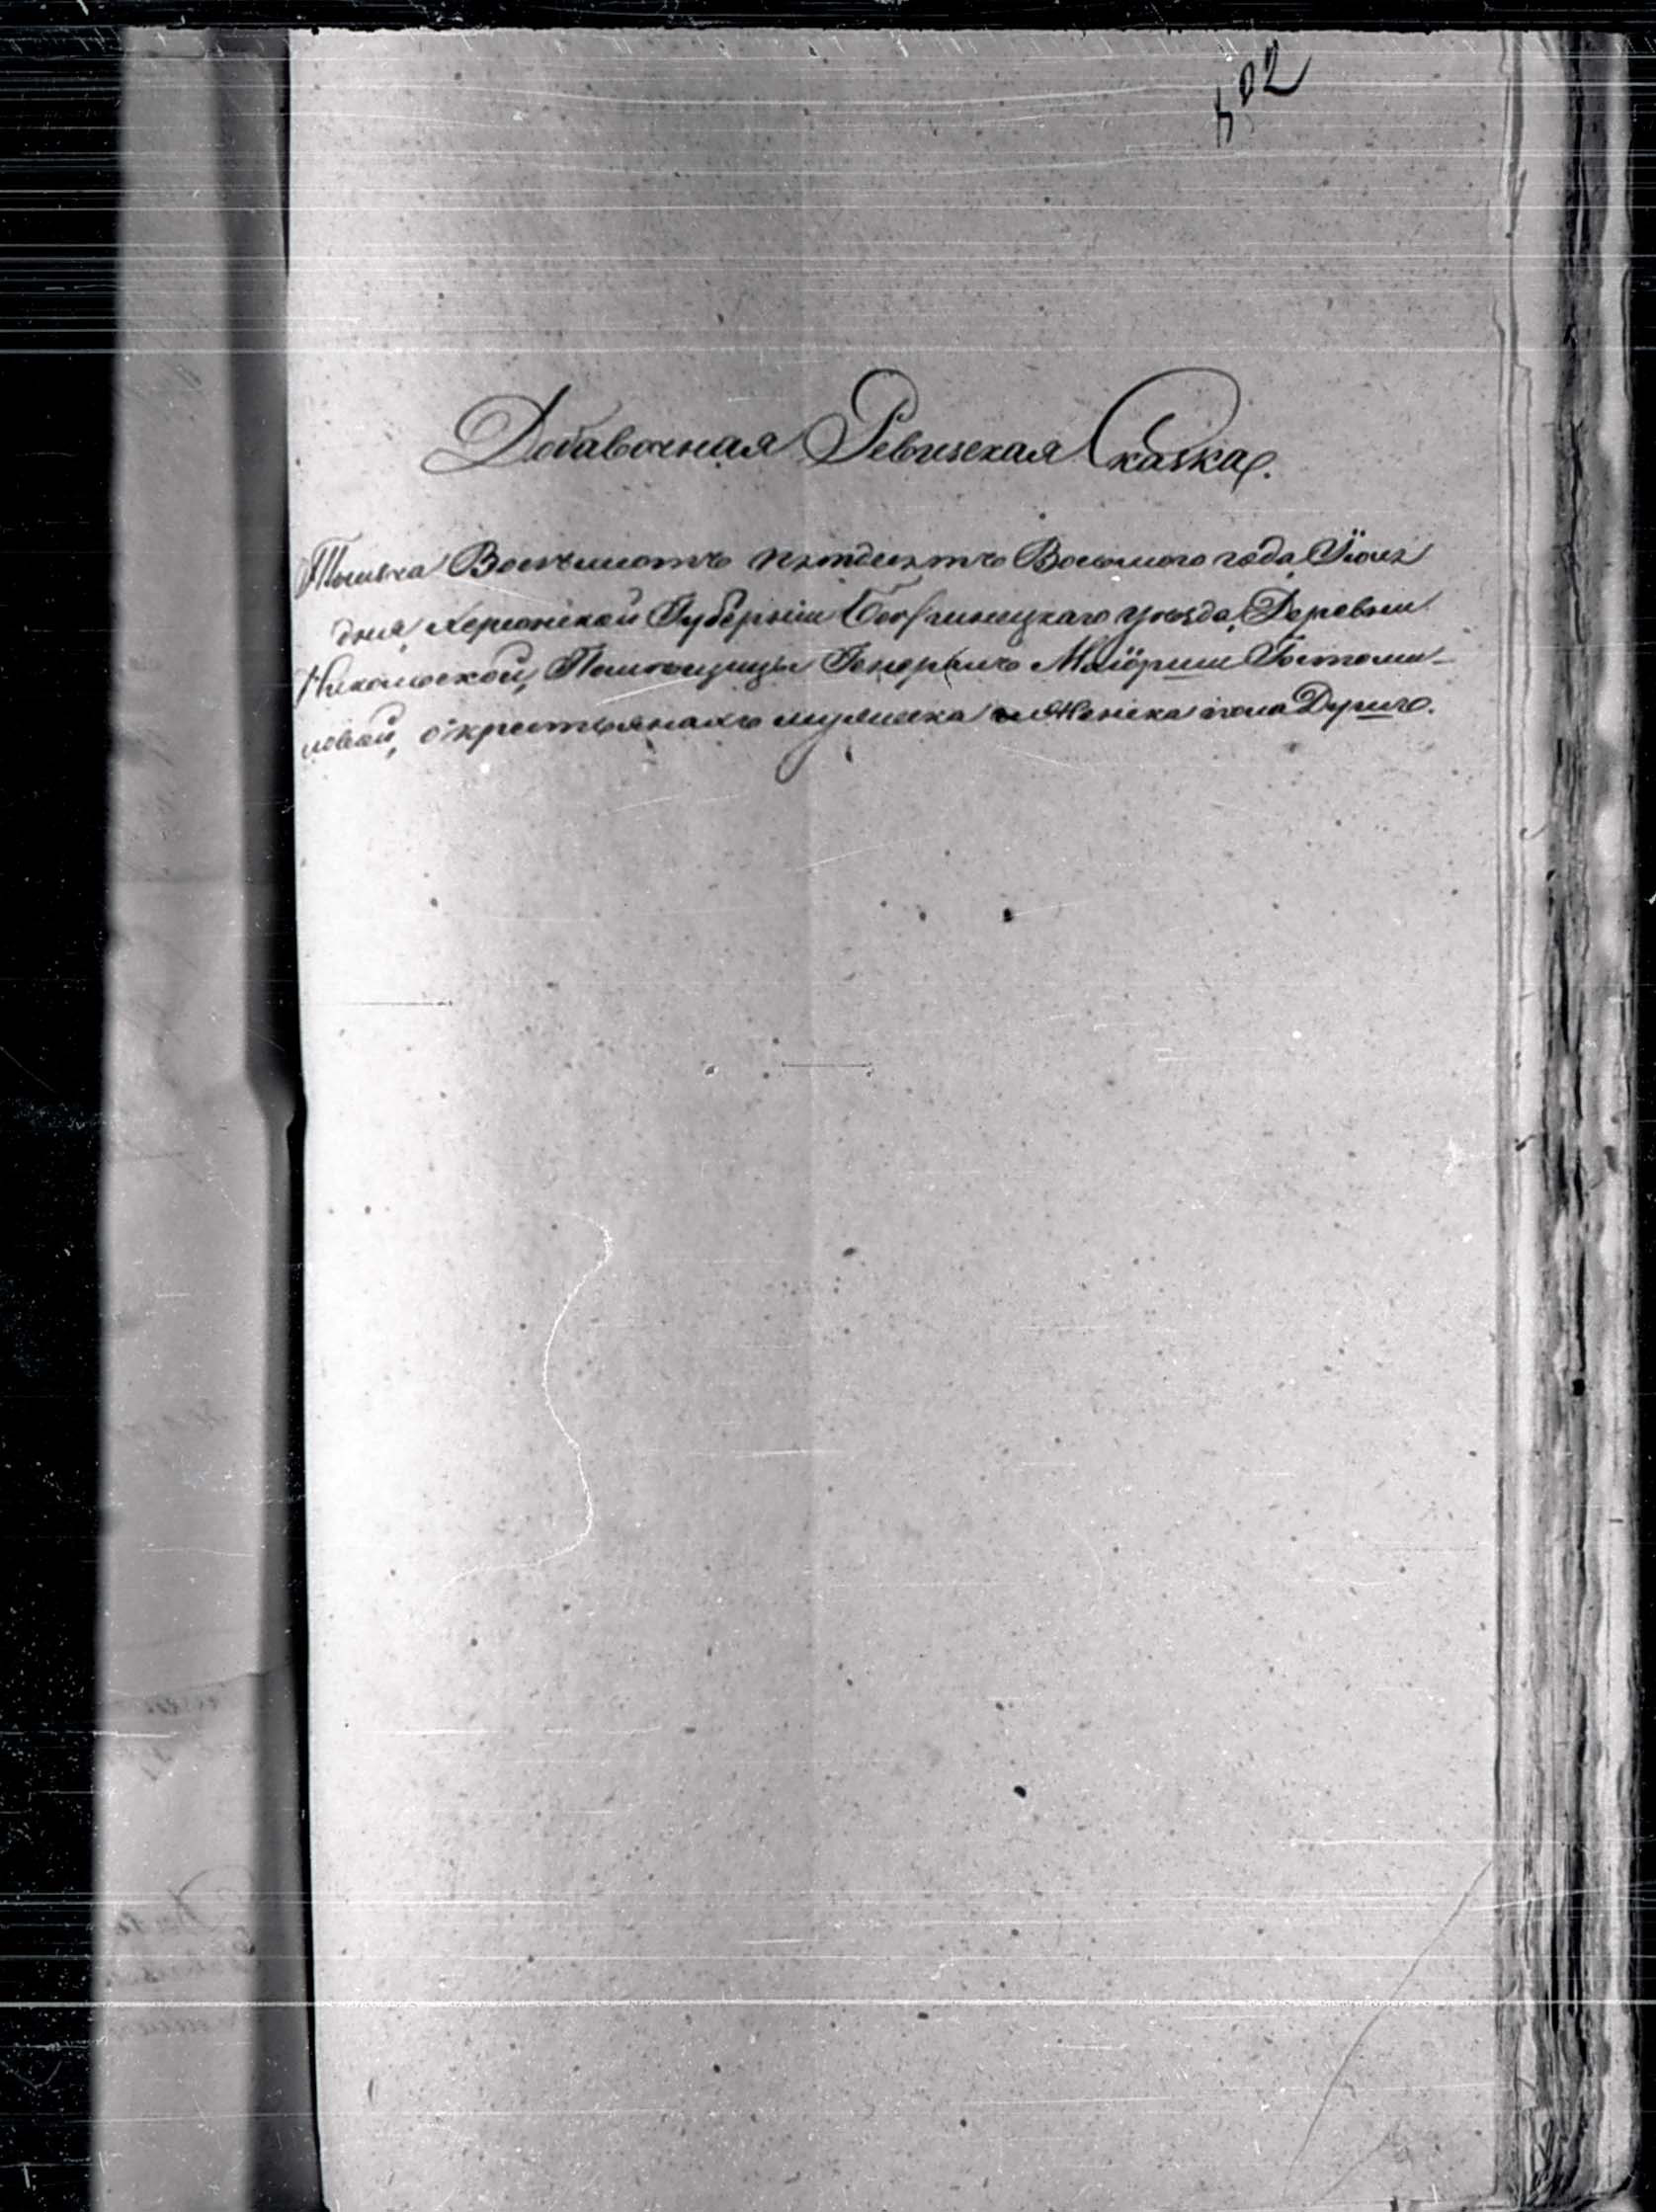 502
Добавочная Ревизская Сказка.
Тысяча Восемьсотъ пятдесятъ Восьмого года Iюля
дня, Херсонской Губернiи Бобринецкаго уѣзда, Деревни
Никольской, Помѣщицы Генералъ Маiорши Гостоми-
ловой, о крестьянахъ мужеска и Женска пола Душъ.